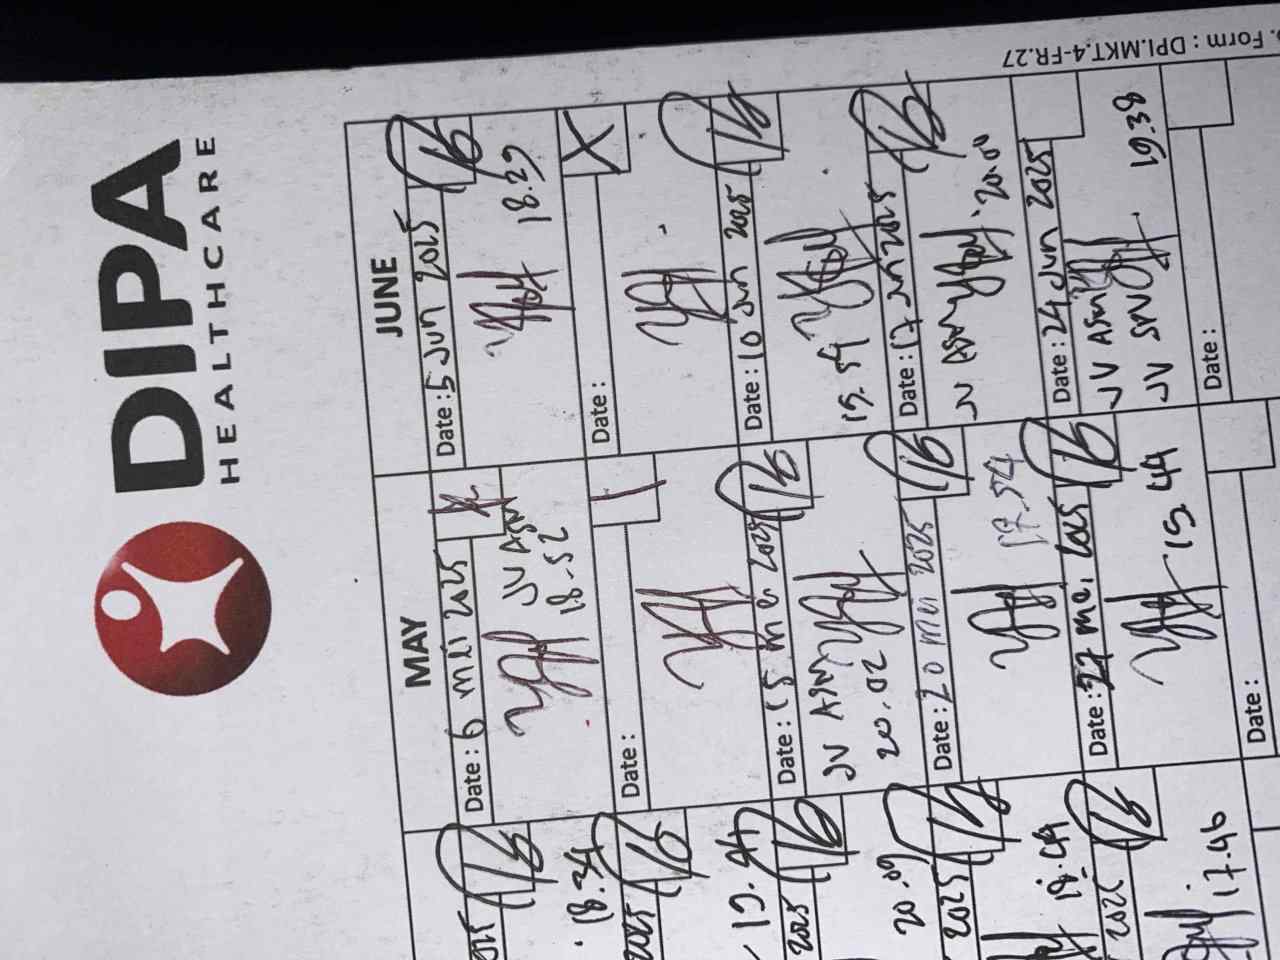 DIPA
HEALTHCARE
No. Form : DPI.MKT.4-FR.27
MAY
Date : 6 mei 2025
JV ASM
18-52
Date :
Date : 15 mei 2025
JV ASM
20.02
Date : 20 mei 2025
17.54
Date : 27 mei 2025
15.49
Date :
JUNE
Date : 5 Jun 2025
18.29
Date :
Date : 10 Jun 2025
15.59
Date : 17 Jun 2025
JV ASM
20.00
Date : 24 Jun 2025
JV ASM
JV SPV
19.38
Date :
2025
18.34
2025
2025
20.09
2025
18.49
2025
17.46